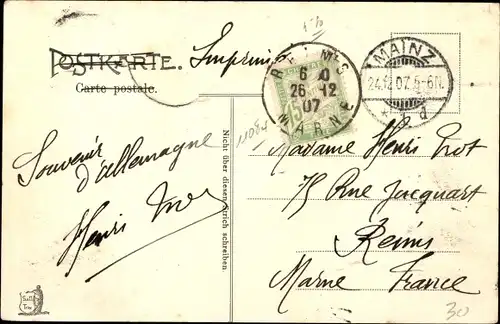 POSTKARTE. Imprimé
Carte postale.
REIMS
6 0
26-12
07
MARNE
MAINZ
24.12.07.5-6N.
* 1 d
5
11084
Souvenir
d'allemagne
Henri
Nicht über diesen Strich schreiben.
Madame Henri
75 Rue Jacquart
Reims
Marne France
30